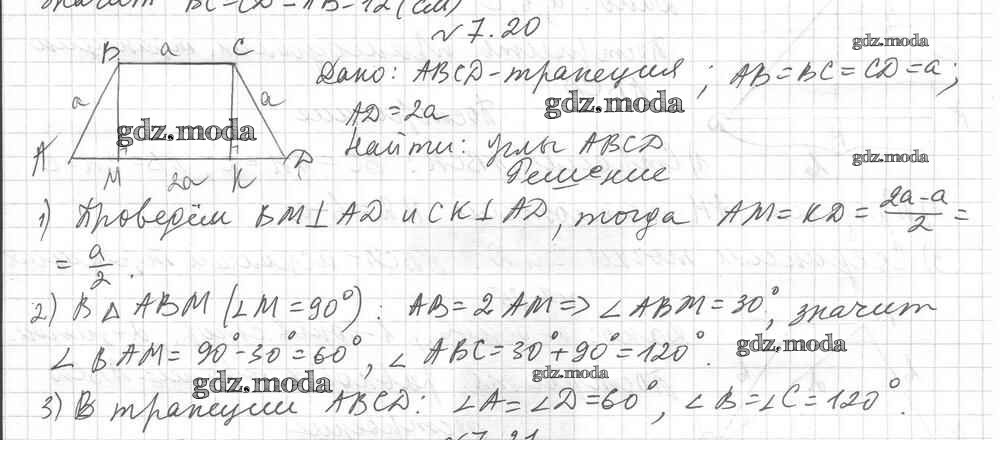 значит BC=CD=AB=12(см)
№7.20
Дано: ABCD-трапеция; AB=BC=CD=a;
AD=2a
Найти: углы ABCD
Решение
B a C
a a
A M 2a K D
1) Проведём BM⊥AD и CK⊥AD, тогда AM=KD=(2a-a)/2=
=a/2.
2) В △ABM (∠M=90°): AB=2AM=>∠ABM=30°, значит
∠BAM=90°-30°=60°, ∠ABC=30°+90°=120°.
3) В трапеции ABCD: ∠A=∠D=60°, ∠B=∠C=120°.
№7.21
gdz.moda
gdz.moda
gdz.moda
gdz.moda
gdz.moda
gdz.moda
gdz.moda